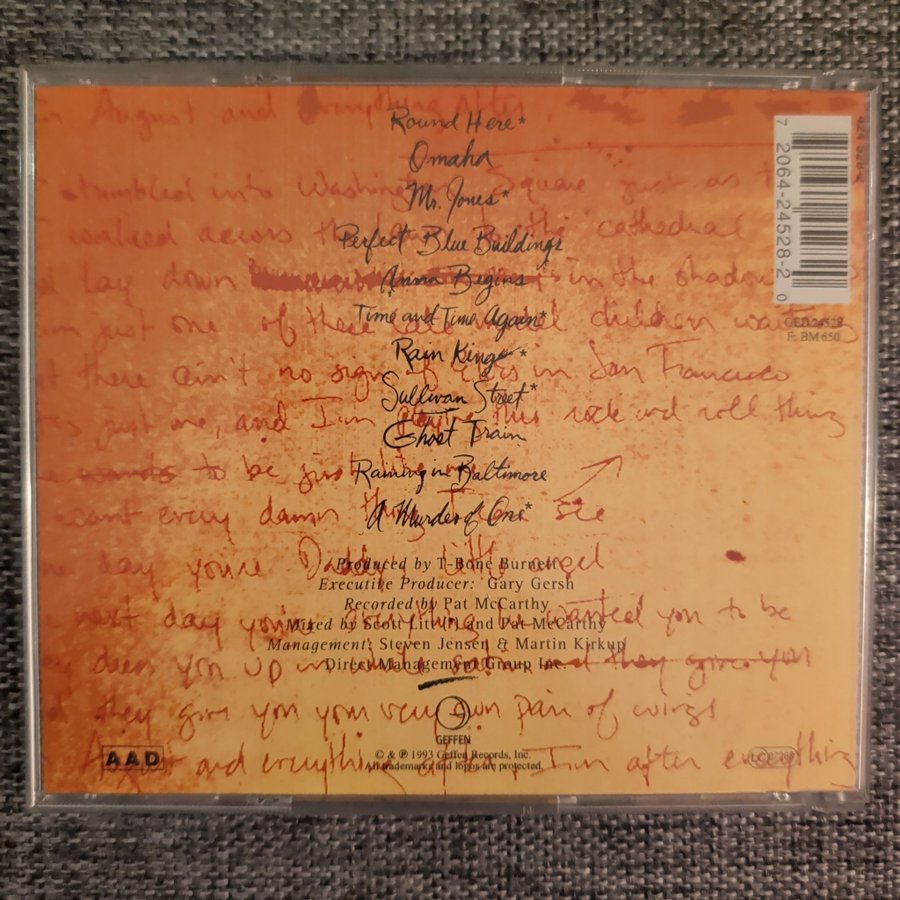 August and everything after
Round Here*
Omaha
stumbled into Washington Square just as
Mr. Jones*
walked across the cathedral
Perfect Blue Buildings
lay down in the shadow
Anna Begins
just one of these children
Time and Time Again*
Rain King *
there ain't no sign of in San Francisco
Sullivan Street*
just one, and I'm playing this rock and roll thing
Ghost Train
to be just
Raining in Baltimore
want every damn thing I see
A Murder of One*
day you're Daddy's little angel
Produced by T-Bone Burnett
Executive Producer: Gary Gersh
Recorded by Pat McCarthy
next day you're everything wanted you to be
Mixed by Scott Litt (*) and Pat McCarthy
Management: Steven Jensen & Martin Kirkup
dress you up in white they give you
Direct Management Group Inc.
they give you your very own pair of wings
GEFFEN
© & ℗ 1993 Geffen Records, Inc.
August and everything after I'm after everything
All trademarks and logos are protected.
AAD
7 2064-24528-2 0
GED 24528
F: BM 650